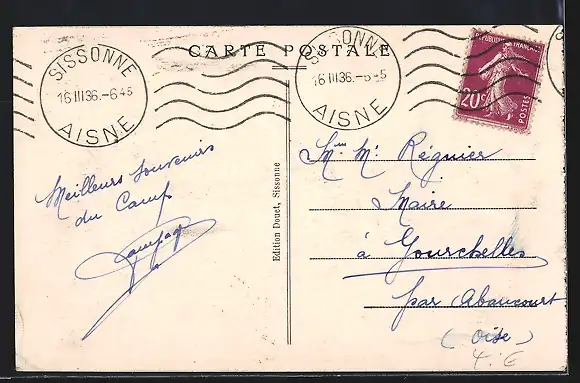 CARTE POSTALE
SISSONNE
16 III 36.-6 45
AISNE
SISSONNE
16 III 36.-6 45
AISNE
REPUBLIQUE FRANÇAISE
20c
POSTES
Meilleurs souvenirs
du Camp
Edition Douet, Sissonne
Mr Régnier
Maire
à Gourchelles
par Abancourt
(Oise)